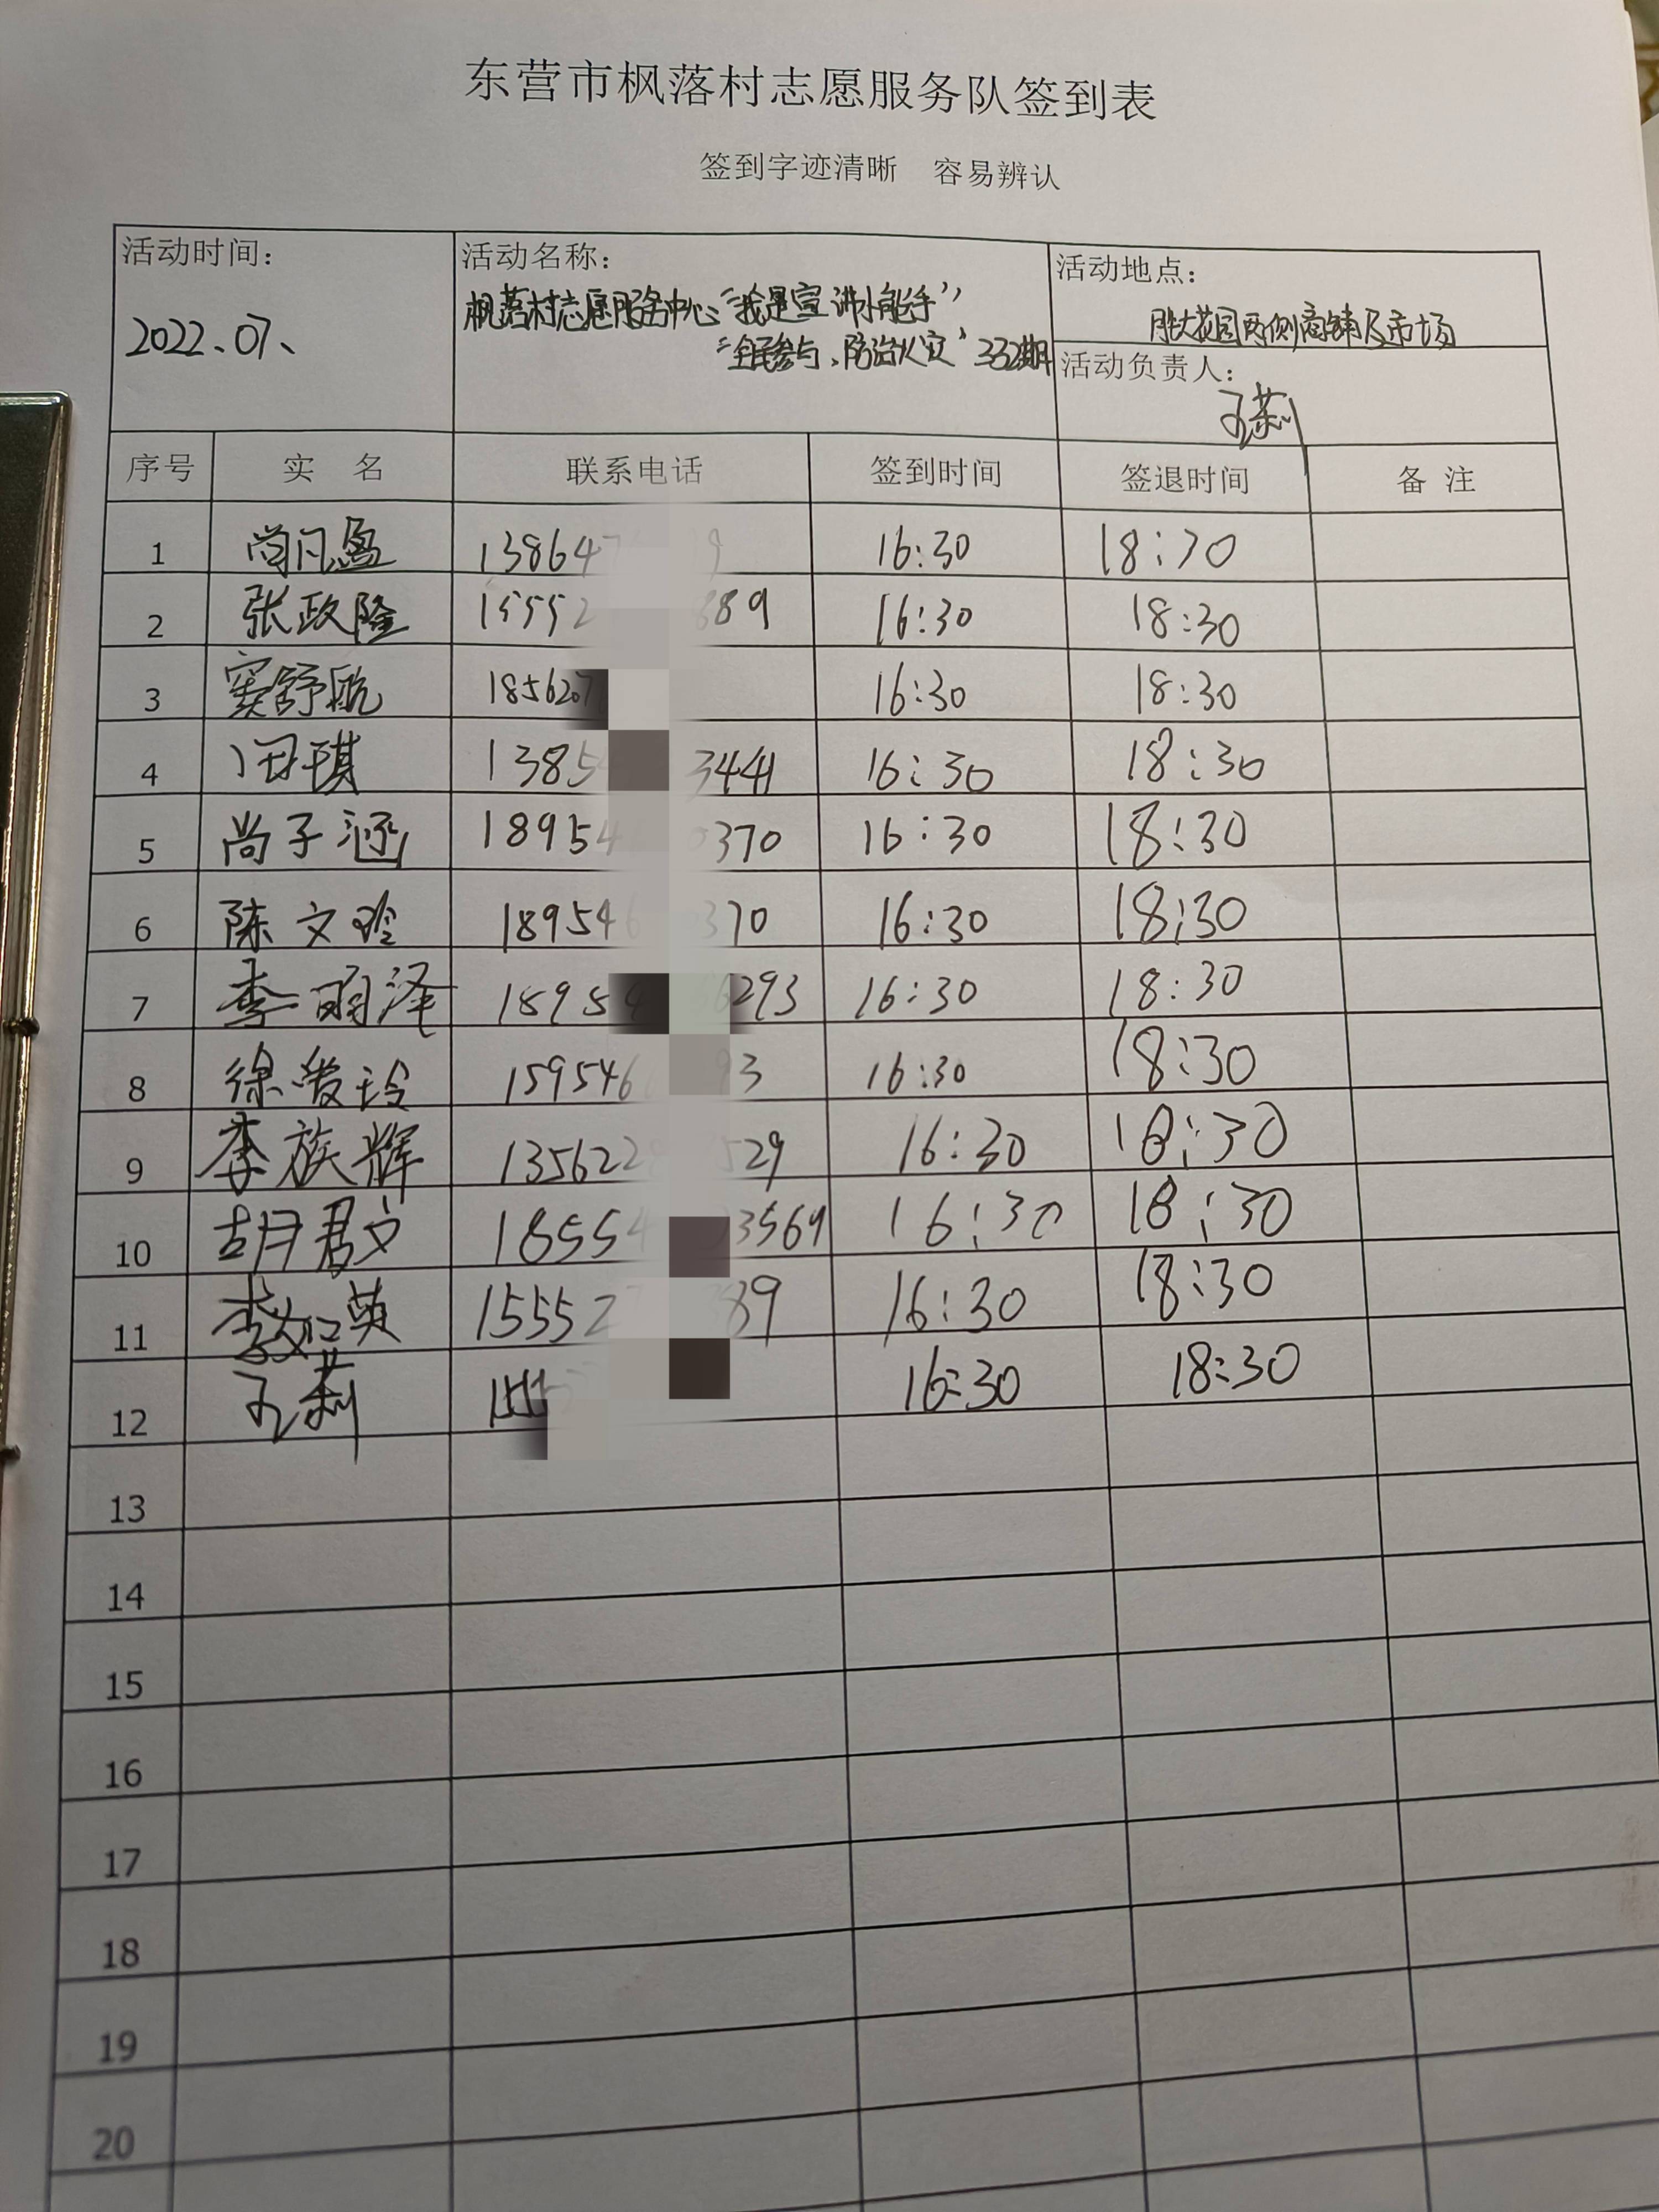 东营市枫落村志愿服务队签到表
签到字迹清晰 容易辨认
活动时间：
2022.07、
活动名称：
枫落村志愿服务中心“我是宣讲小能手”
“全民参与、防治火灾”332期
活动地点：
胜大花园西侧商铺及市场
活动负责人：
孔莉
序号 实 名 联系电话 签到时间 签退时间 备 注
1 尚凡盈 13864 9 16:30 18:30
2 张政隆 15552 389 16:30 18:30
3 窦舒航 1856207 16:30 18:30
4 田琪 1385 3441 16:30 18:30
5 尚子涵 18954 370 16:30 18:30
6 陈文玲 18954 370 16:30 18:30
7 李明泽 15954 6293 16:30 18:30
8 徐爱玲 159546 93 16:30 18:30
9 李族辉 135622 529 16:30 18:30
10 胡君文 18554 3569 16:30 18:30
11 李如英 15552 389 16:30 18:30
12 孔莉 16:30 18:30
13
14
15
16
17
18
19
20